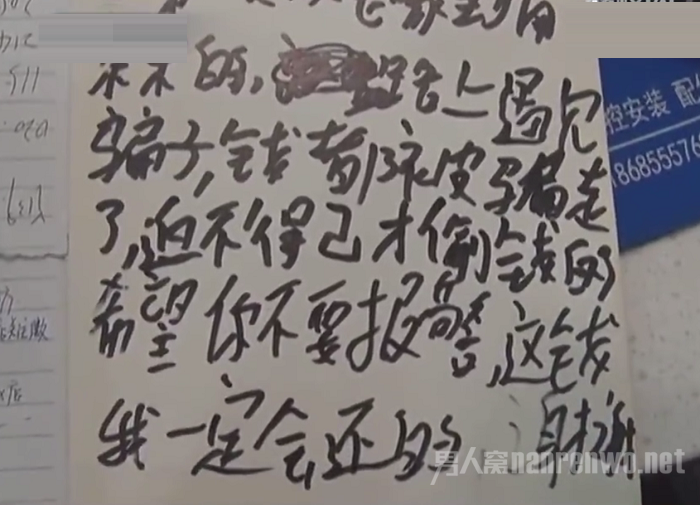 的,路上遇见
骗子,钱都被骗走
了,迫不得已才偷钱的
希望你不要报警,这钱
我一定会还的 谢谢
控安装 配
1868555576
男人窝nanrenwo.net